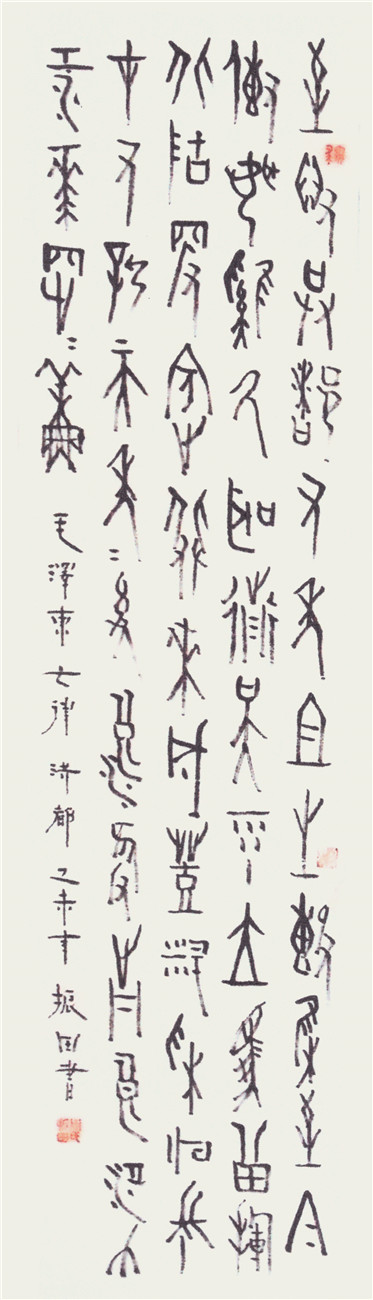 到得洪都又一年祖生擊楫至今
傳聞雞久聽南天雨立馬曾揮
北地鞭鬢雪飛來成廢料彩雲長
在有新天年〻後浪推前浪江草
江花處〻鮮 毛澤東七律洪都 乙未年 振書